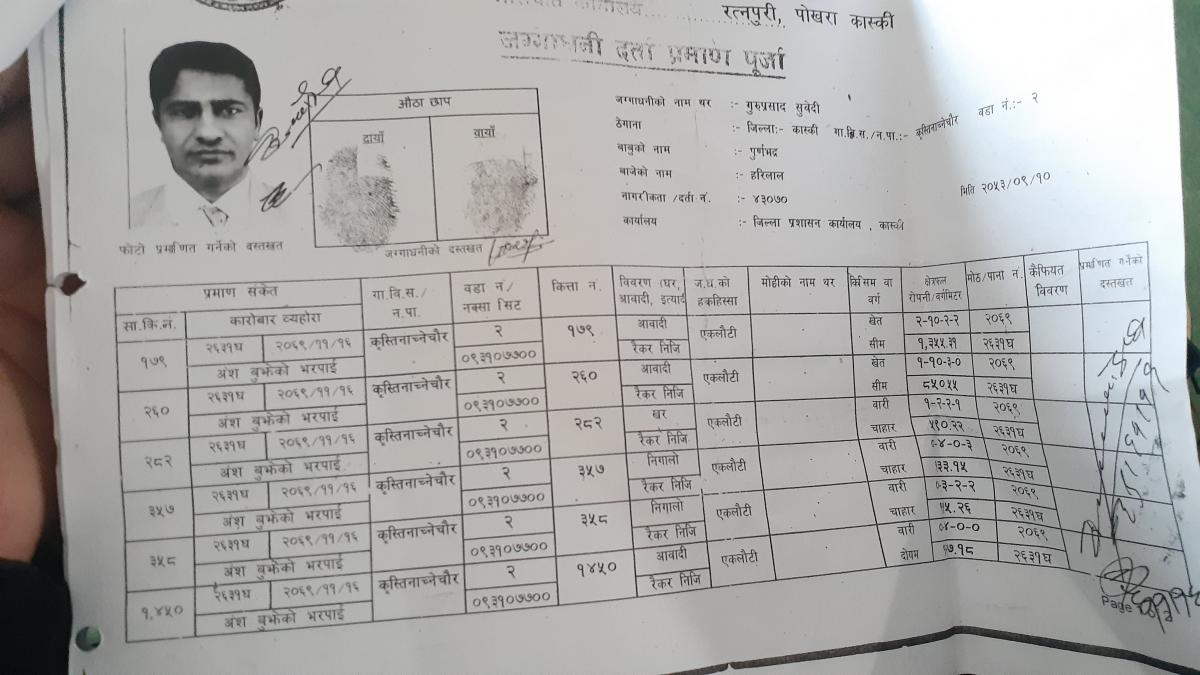 रत्नपुरी, पोखरा कास्की
जग्गाधनी दर्ता प्रमाण पूर्जा
औठा छाप
दायाँ
वायाँ
फोटो प्रमाणित गर्नेको दस्तखत
जग्गाधनीको दस्तखत
जग्गाधनीको नाम थर :- गुरुप्रसाद सुवेदी
ठेगाना :- जिल्ला:- कास्की गा.बि.स./न.पा.:- कृस्तिनाच्नेचौर वडा नं.:- २
बाबुको नाम :- पुर्णभद्र
बाजेको नाम :- हरिलाल
नागरीकता /दर्ता नं. :- ४३०७० मिति २०५३/०९/१०
कार्यालय :- जिल्ला प्रशासन कार्यालय , कास्की
प्रमाण संकेत गा.वि.स./ न.पा. वडा नं/ नक्सा सिट कित्ता न. विवरण (घर, आवादी, इत्यादि ज.ध.को हकहिस्सा मोहीको नाम थर किसिम वा वर्ग क्षेत्रफल रोपनी/वर्गमिटर मोठ/पाना नं. कैफियत विवरण प्रमाणित गर्नेको दस्तखत
सा.कि.नं. कारोबार व्यहोरा
१७९ २६३१घ २०६९/११/१६ कृस्तिनाच्नेचौर २ १७९ आवादी एकलौटी खेत २-१०-२-२ २०६९
अंश बुझेको भरपाई ०९३१०७७०० रैकर निजि सीम १,३५५.३१ २६३१घ
२६० २६३१घ २०६९/११/१६ कृस्तिनाच्नेचौर २ २६० आवादी एकलौटी खेत १-१०-३-० २०६९
अंश बुझेको भरपाई ०९३१०७७०० रैकर निजि सीम ८५०.५५ २६३१घ
२८२ २६३१घ २०६९/११/१६ कृस्तिनाच्नेचौर २ २८२ खर एकलौटी वारी १-२-२-१ २०६९
अंश बुझेको भरपाई ०९३१०७७०० रैकर निजि चाहार ५९०.२२ २६३१घ
३५७ २६३१घ २०६९/११/१६ कृस्तिनाच्नेचौर २ ३५७ निगालो एकलौटी वारी २०६९
अंश बुझेको भरपाई ०९३१०७७०० रैकर निजि चाहार २६३१घ
३५८ २६३१घ २०६९/११/१६ कृस्तिनाच्नेचौर २ ३५८ निगालो एकलौटी वारी २०६९
अंश बुझेको भरपाई ०९३१०७७०० रैकर निजि चाहार २६३१घ
१,४५० २६३१घ २०६९/११/१६ कृस्तिनाच्नेचौर २ १४५० आवादी एकलौटी वारी २०६९
अंश बुझेको भरपाई ०९३१०७७०० रैकर निजि दोयम २६३१घ
Page